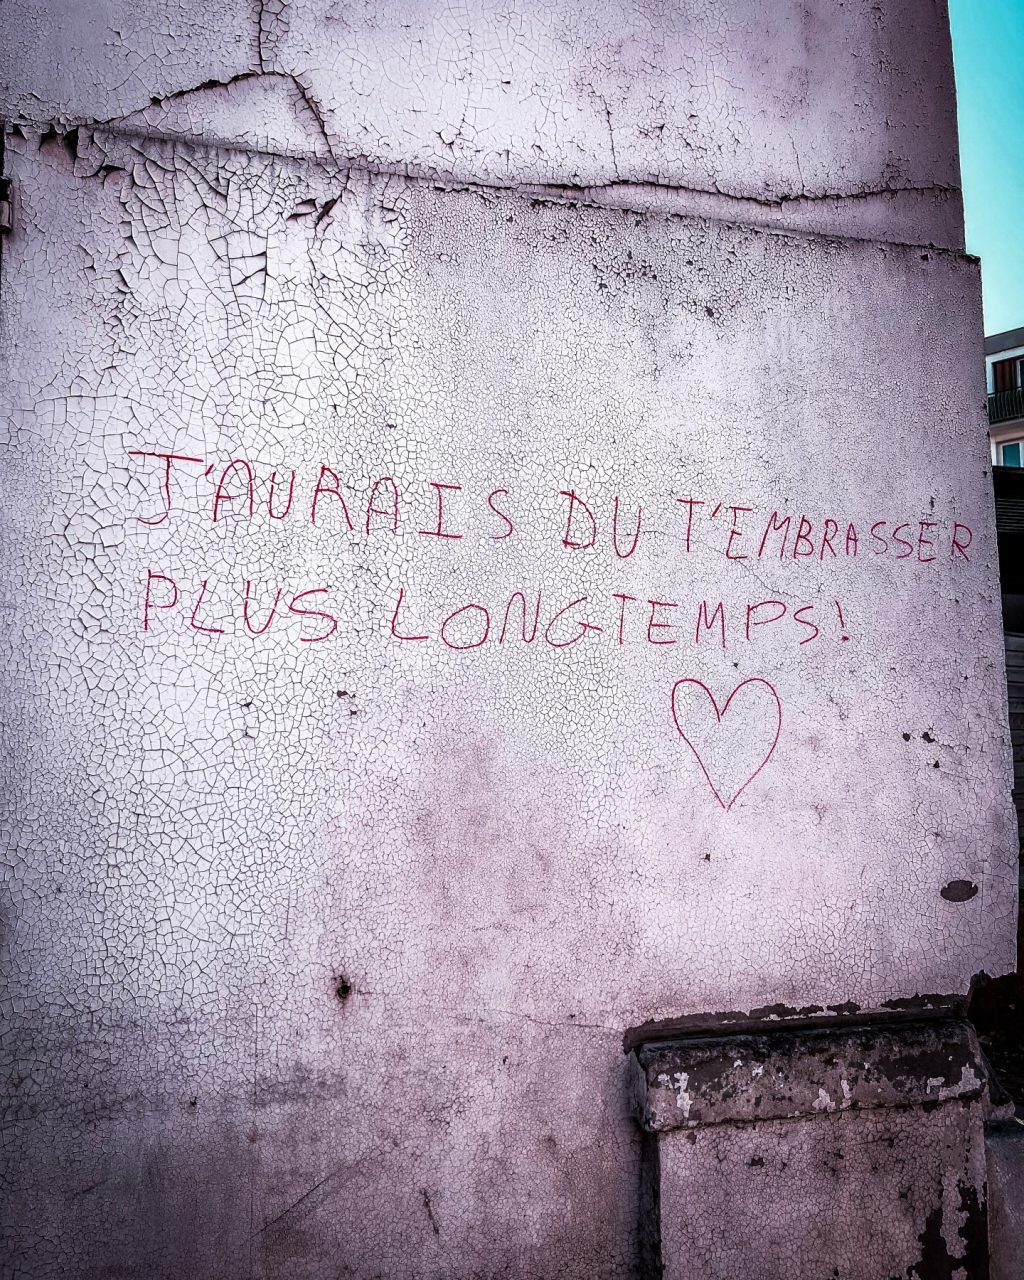 J'AURAIS DU T'EMBRASSER
PLUS LONGTEMPS!